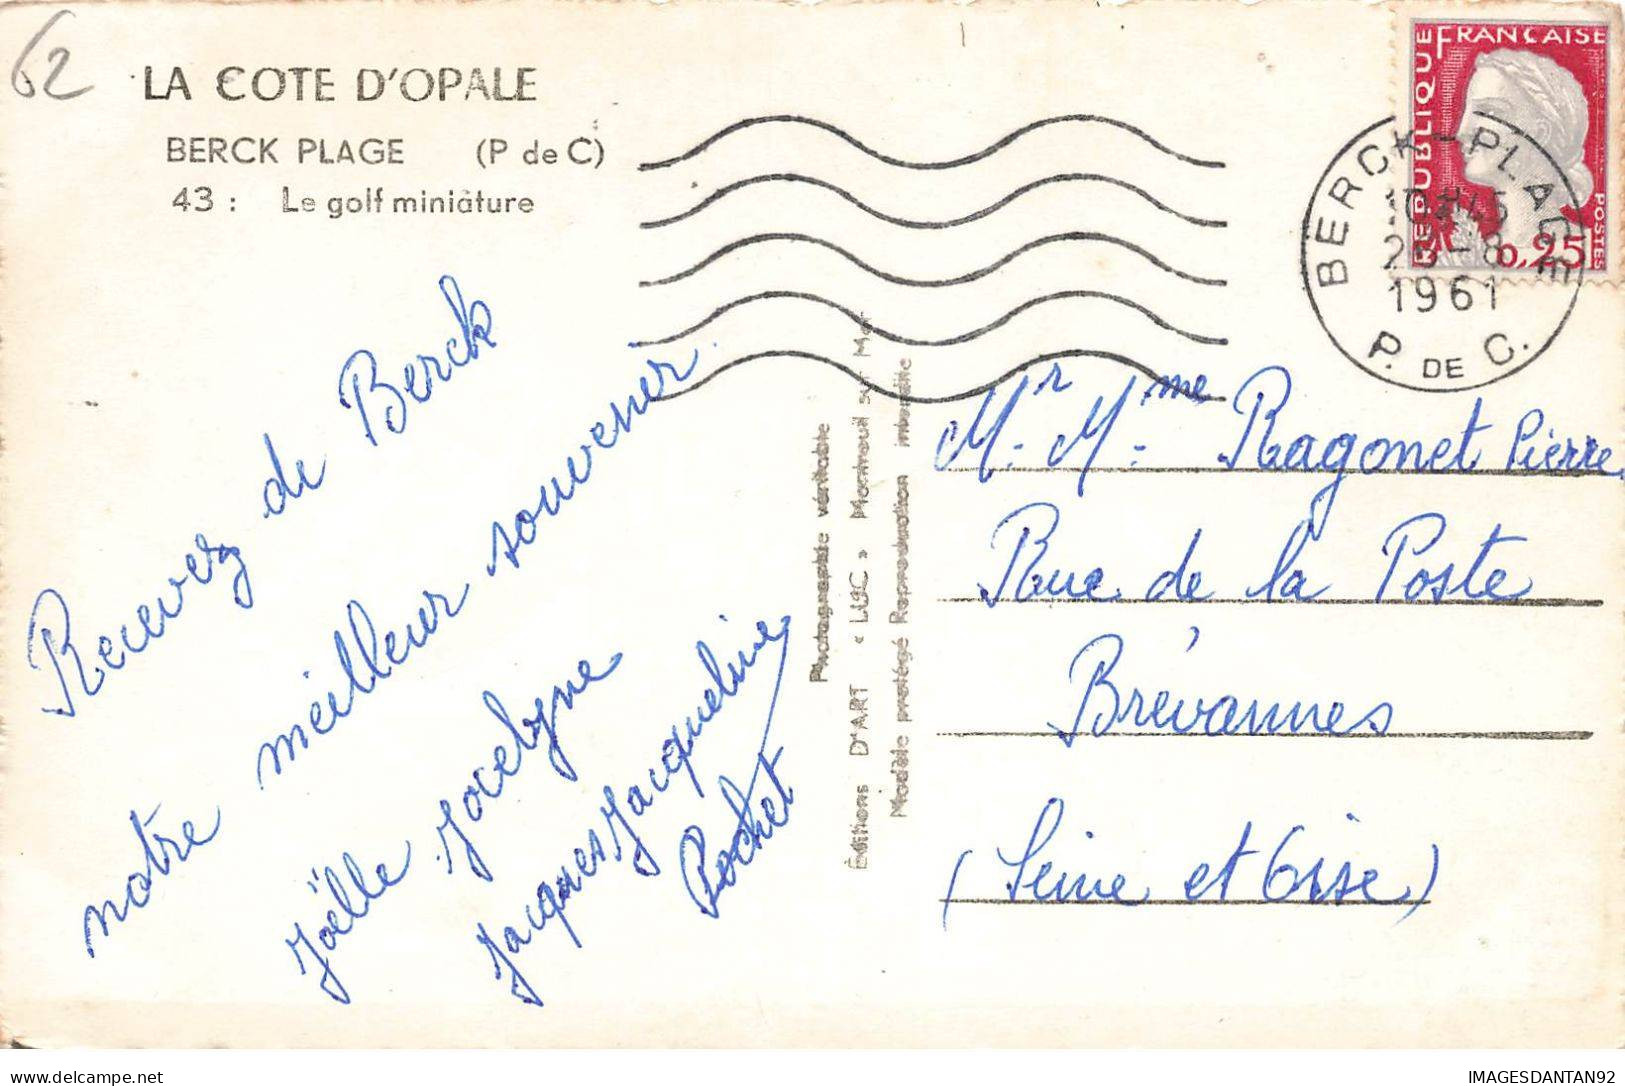 62
LA COTE D'OPALE
BERCK PLAGE (P de C)
43 : Le golf miniature
Recevez de Berck
notre meilleur souvenir.
Joëlle Jocelyne
Jacques Jacqueline
Rochet
Photographie véritable
Éditions D'ART « LUC » Montreuil sur Mer
Modèle protégé Reproduction interdite
RÉPUBLIQUE FRANÇAISE
POSTES
0,25
BERCK-PLAGE
10H45
-8
1961
P. DE C.
Mr. Mme. Ragonet Pierre
Rue de la Poste
Brévannes
(Seine et Oise)
IMAGESDANTAN92
delcampe.net